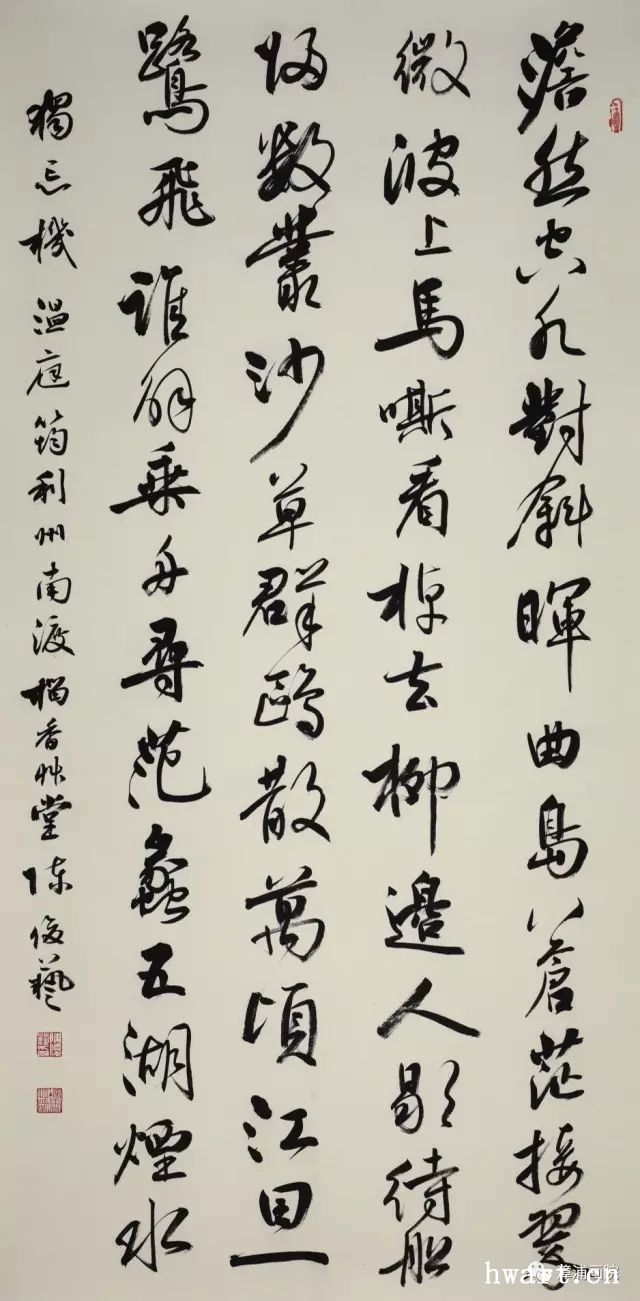 澹然空水對斜暉曲島蒼茫接翠
微波上馬嘶看棹去柳邊人歇待船
歸數叢沙草群鷗散萬頃江田一
鷺飛誰解乘舟尋范蠡五湖煙水
獨忘機 温庭筠利州南渡 香艸堂 陳俊藝
漳浦画院
hwart.cn